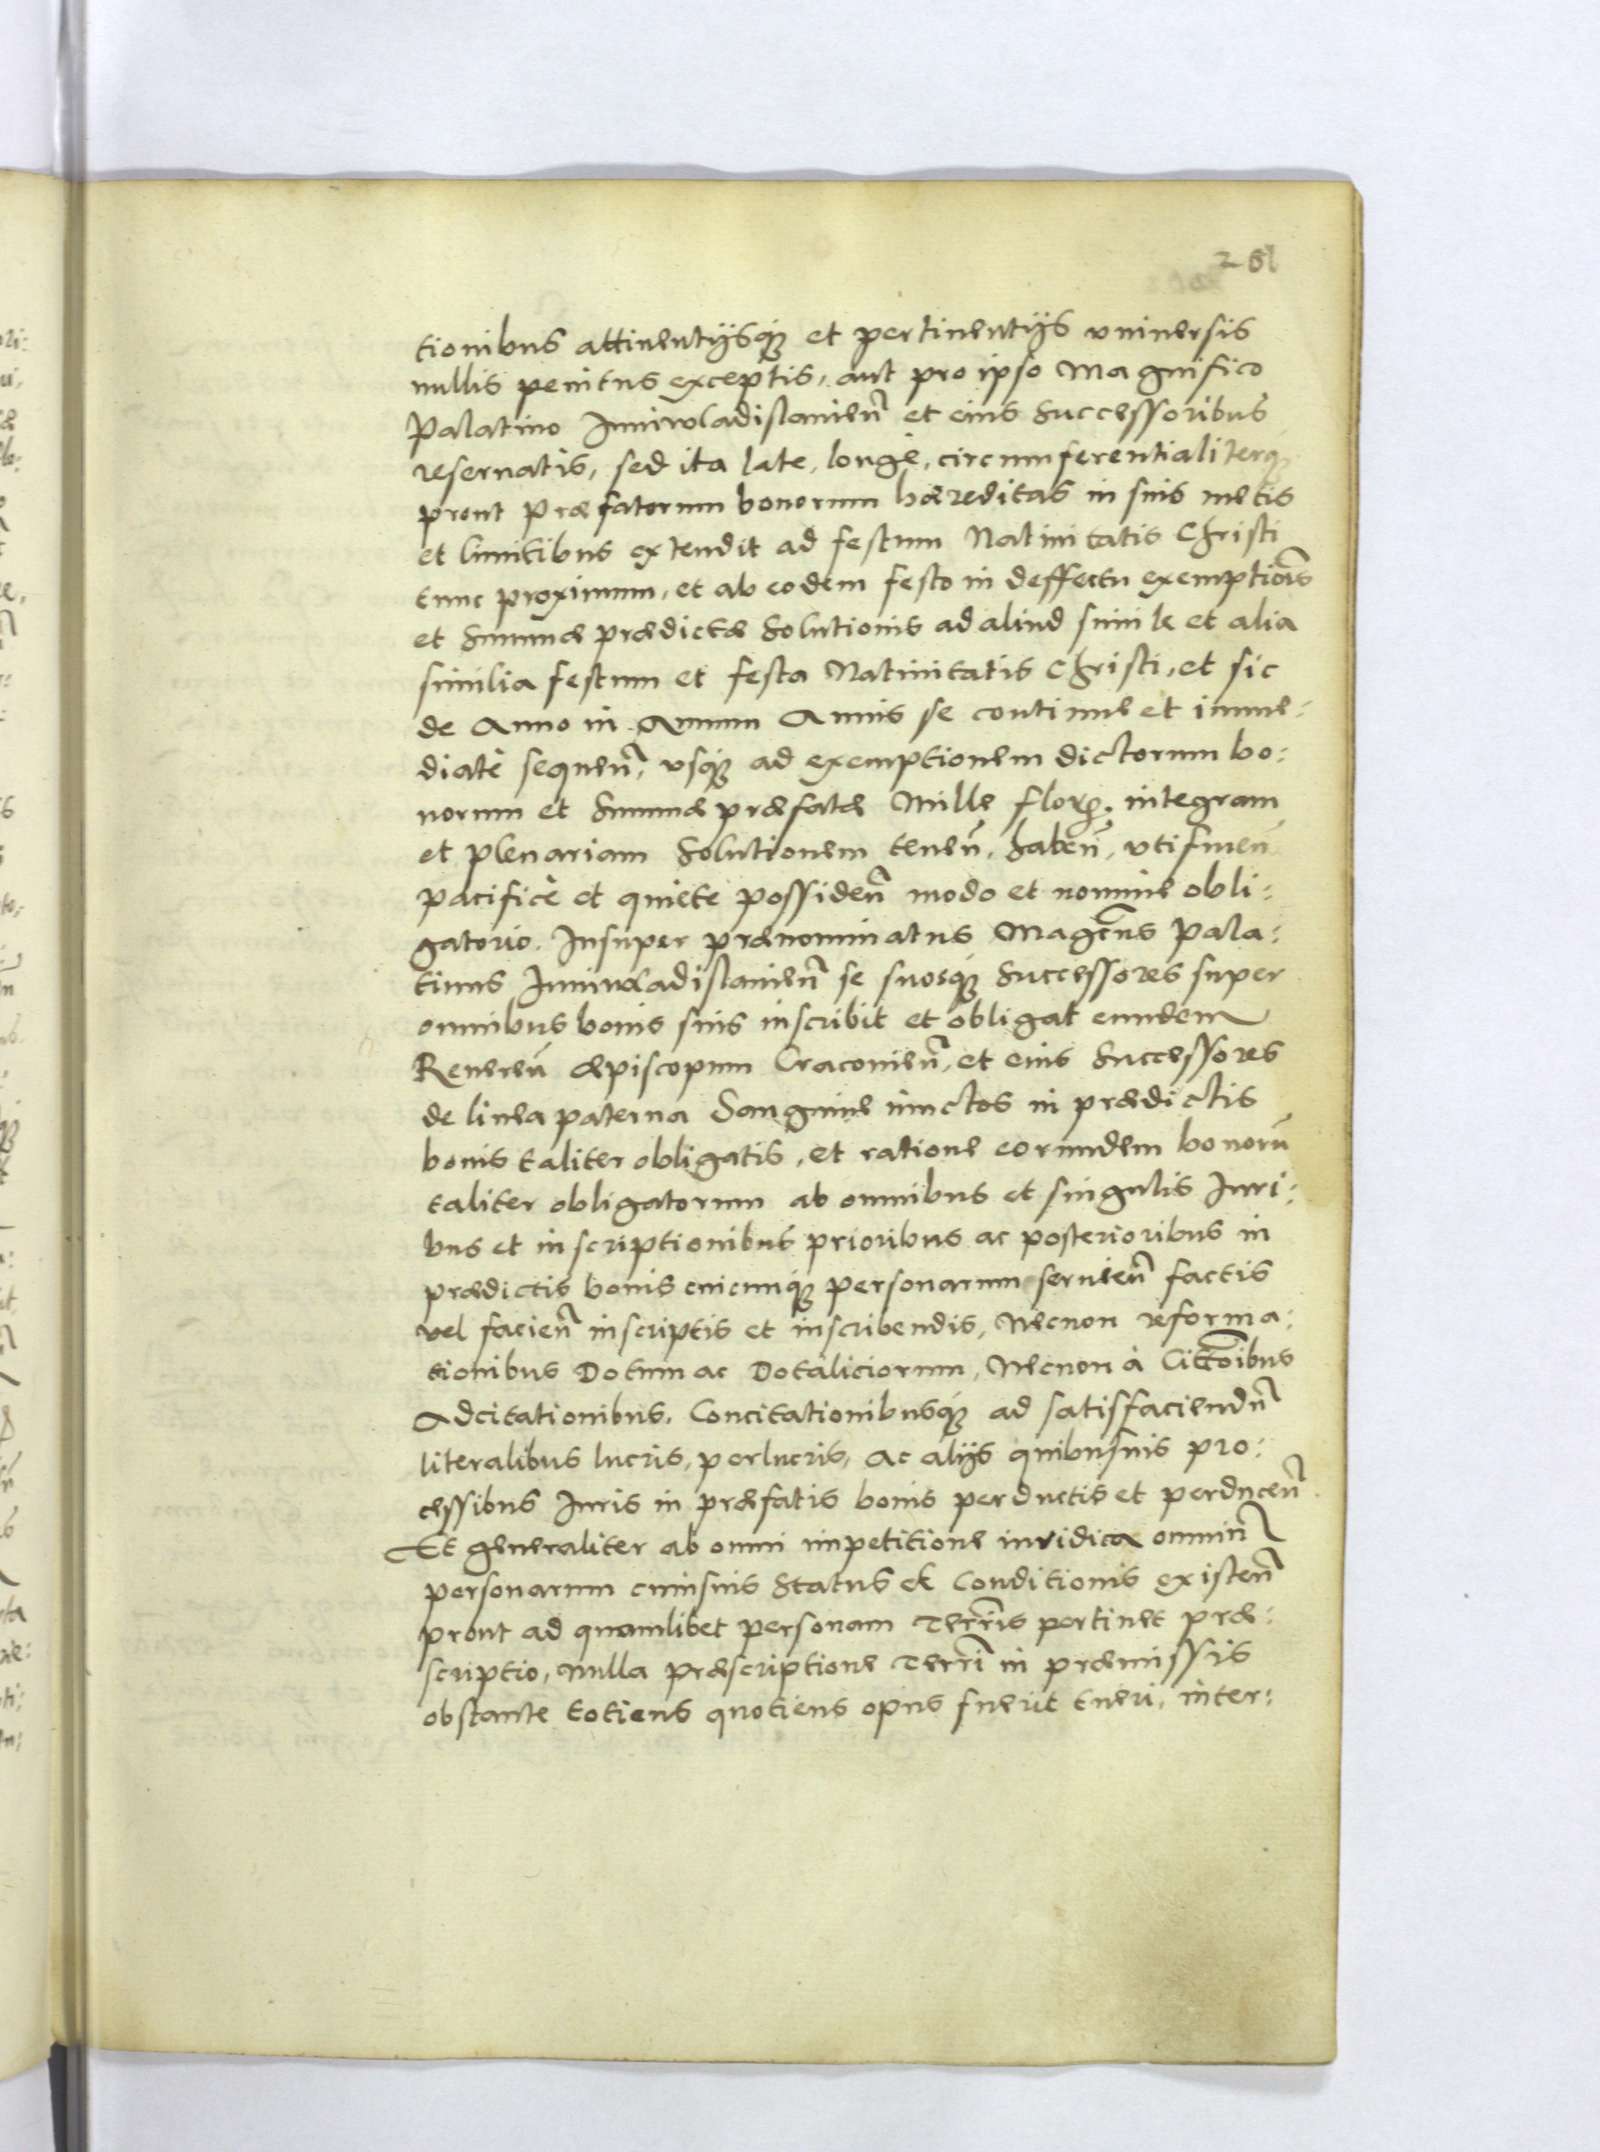 281
tionibus attinentijsq́ꝫ et pertinentijs vniuersis
nullis penitus exceptis, aut pro ipso Magnifico
Palatino Iuniwladislauien̄ et eius Successoribus
reseruatis, sed ita late, longè, circumferentialiterq́ꝫ
prout Præfatorum bonorum hæreditas in suis metis
et limitibus extendit ad festum Natiuitatis Christi
tunc proximum, et ab eodem festo in deffectu exemptiōis
et Summæ prædictæ Solutionis ad aliud simile et alia
similia festum et festa Natiuitatis Christi, et sic
de Anno in Annum Annis se continuè et imme:
diatè sequen̄, vsq́ꝫ ad exemptionem dictorum bo:
norum et Summæ præfatæ Mille floꝝ. integram
et plenariam Solutionem tenen̄, haben̄, vtifruen̄
pacificè et quiete possiden̄ modo et nomine obli:
gatorio. Insuper prænominatus Magcus Pala:
tinus Iuniwladislauien̄ se suosq́ꝫ Successores super
omnibus bonis suis inscribit et obligat eundem
Reueren̄ Æpiscopum Cracouien̄, et eius Successores
de linea paterna Sanguine iunctos in prædictis
bonis taliter obligatis, et ratione eorundem bonorū
taliter obligatorum ab omnibus et singulis Iuri:
bus et inscriptionibus prioribus ac posterioribus in
prædictis bonis cuicunq́ꝫ personarum seruien̄ factis
vel facien̄ inscriptis et inscribendis, Necnon reforma:
tionibus Dotum ac Dotaliciorum, Necnon à Citt̄oibus
Adcitationibus, Concitationibusq́ꝫ ad satisfaciendn̄
literalibus lucris, perlucris, ac alijs quibusuis pro:
cessibus Iuris in præfatis bonis perductis et perducen̄
Et generaliter ab omni impetitione iuridica omnin̄
personarum cuiusuis Status et Conditionis existen̄
prout ad quamlibet personam Terr̄is pertinet præ:
scriptio, nulla præscriptione Terr̄i in præmissis
obstante totiens quotiens opus fuerit tueri, inter: